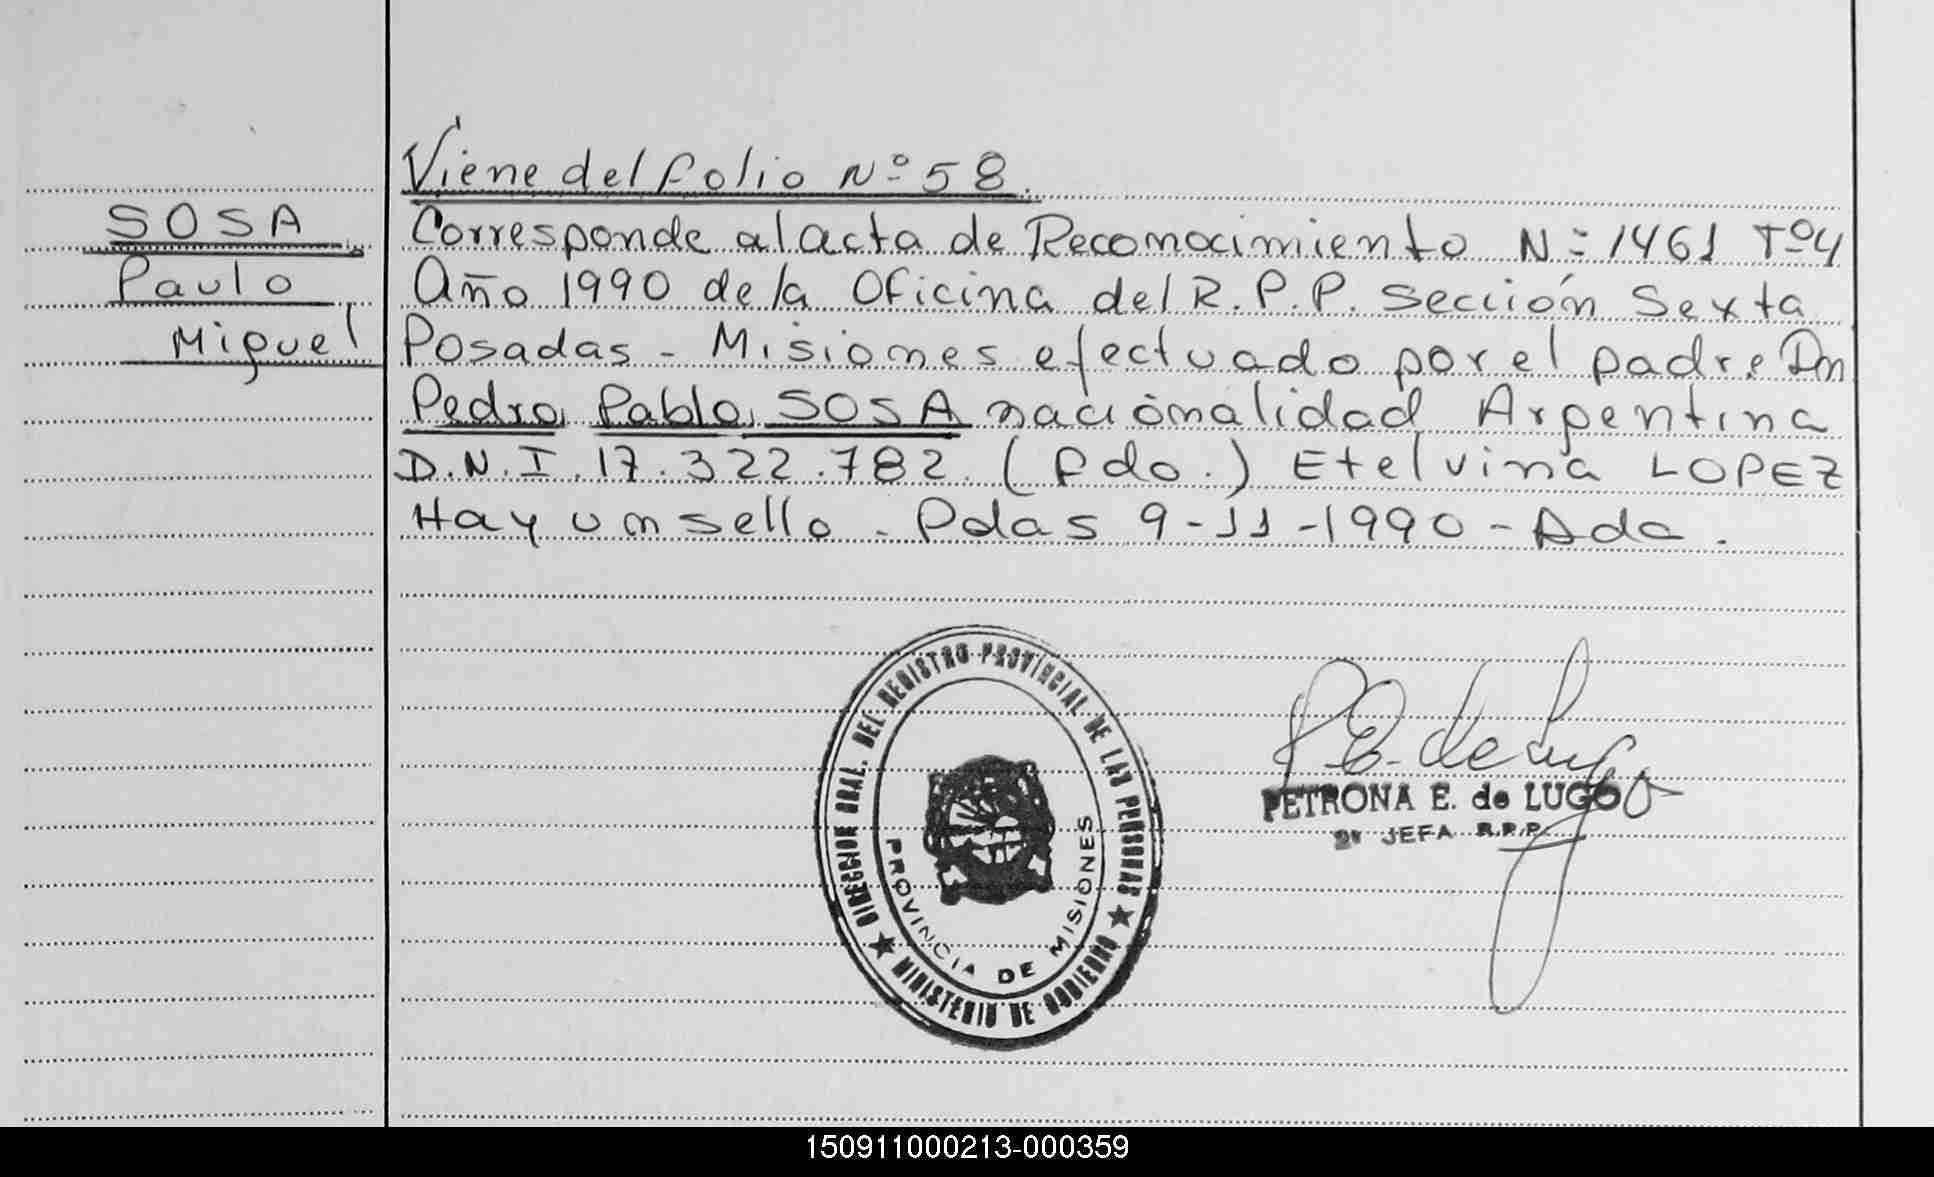 Viene del folio Nº 58.
SOSA
Paulo
Miguel
Corresponde al acta de Reconocimiento Nº 1461 Tº4
Año 1990 de la Oficina del R.P.P. Sección Sexta
Posadas - Misiones efectuado por el padre Dn
Pedro Pablo SOSA nacionalidad Argentina
D.N.I. 17.322.782. (Fdo.) Etelvina LOPEZ
Hay un sello - Pdas 9-11-1990 - Ada.
DIRECCION GRAL. DEL REGISTRO PROVINCIAL DE LAS PERSONAS
MINISTERIO DE GOBIERNO
PROVINCIA DE MISIONES
P E. de Lugo
PETRONA E. de LUGO
2ª JEFA R.P.P.
150911000213-000359